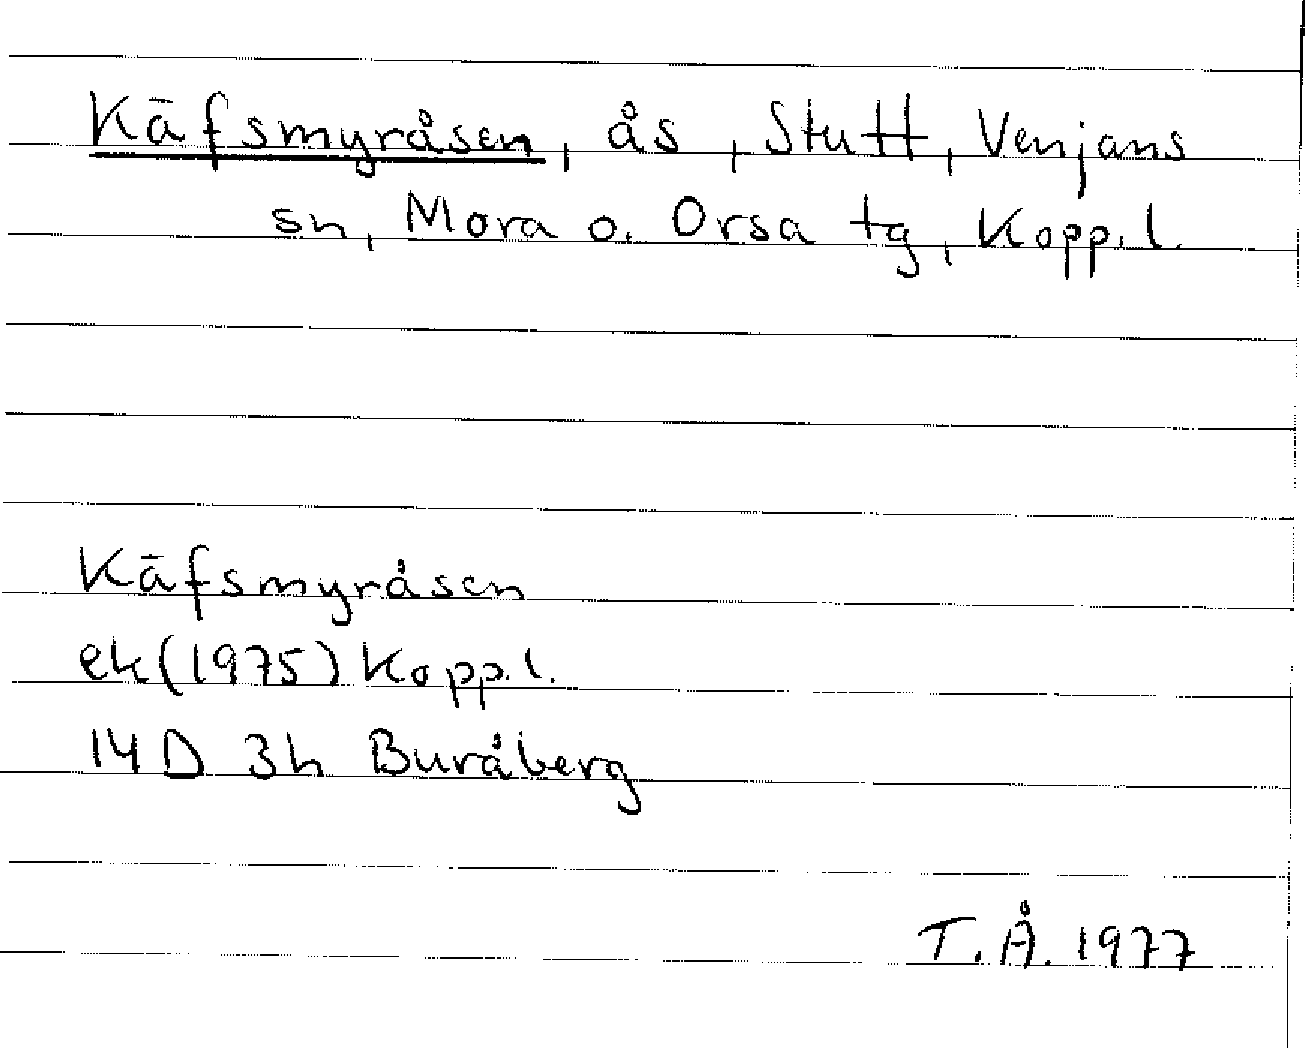 Käfsmyråsen, ås, Stutt, Venjans
sn, Mora o. Orsa tg, Kopp. l.
Käfsmyråsen
ek (1975) Kopp. l.
14 D 3h Buråberg
T. Å. 1977